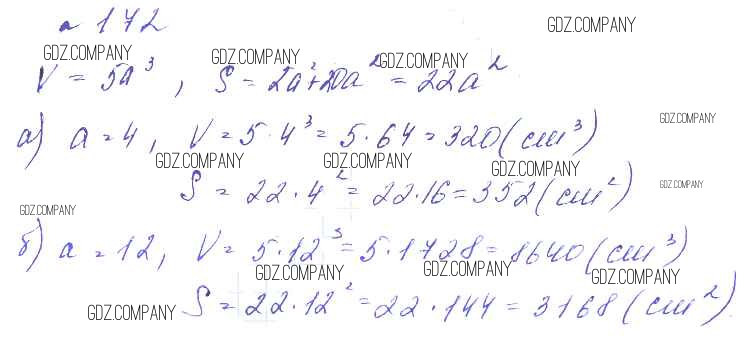 № 172
GDZ.COMPANY
GDZ.COMPANY GDZ.COMPANY GDZ.COMPANY
V = 5a³, S = 2a²+20a² = 22a²
GDZ.COMPANY
а) a = 4, V = 5·4³ = 5·64 = 320 (см³)
GDZ.COMPANY GDZ.COMPANY GDZ.COMPANY
S = 22·4² = 22·16 = 352 (см²)
GDZ.COMPANY
GDZ.COMPANY
б) a = 12, V = 5·12³ = 5·1728 = 8640 (см³)
GDZ.COMPANY GDZ.COMPANY GDZ.COMPANY
S = 22·12² = 22·144 = 3168 (см²).
GDZ.COMPANY